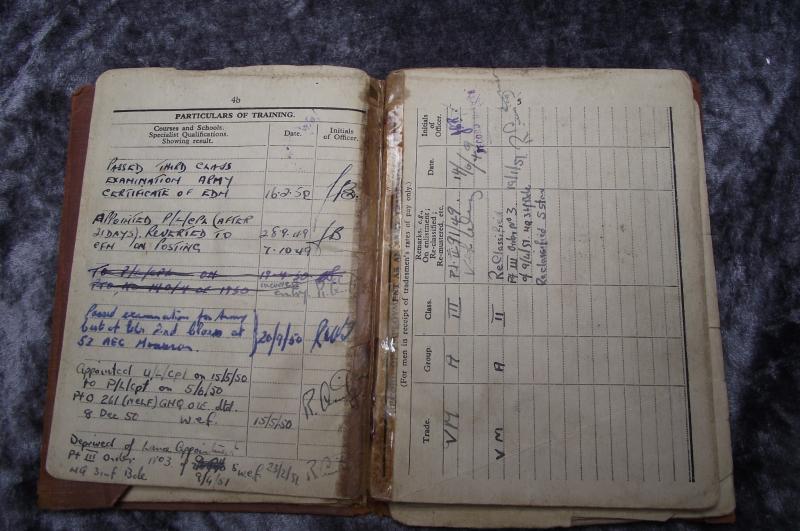 4b
PARTICULARS OF TRAINING.
Courses and Schools.
Specialist Qualifications.
Showing result.
Date.
Initials
of Officer.
PASSED THIRD CLASS
EXAMINATION ARMY
CERTIFICATE OF EDN 16.2.50
APPOINTED P/L/CPL (AFTER
21 DAYS). REVERTED TO 28 9.49
CFN ON POSTING 7.10.49
TO P/L/CPL ON 19.4.50
PTO No 140/4 of 1950 incorrect
entry
Passed examination for Army
Cert of Edn 2nd Class at
52 AEC 20/9/50
Appointed U/L/Cpl on 15/5/50
to P/L/Cpl on 5/6/50
Pt O 261 (MELF) GHQ O2E dtd.
8 Dec 50 w.e.f. 15/5/50
Deprived of Lance Appointment
Pt III Order No 3 of 5 wef 23/2/51
HQ 3 Inf Bde 9/4/51
(For men in receipt of tradesmen's rates of pay only.)
Trade.
Group.
Class.
Remarks, e.g.,
On enlistment;
Re-classified;
Re-mustered, etc.
Date.
Initials
of Officer.
VM A III 14/9/49
VM A II Reclassified 19/1/51
Pt III Order No 3
Reclassified